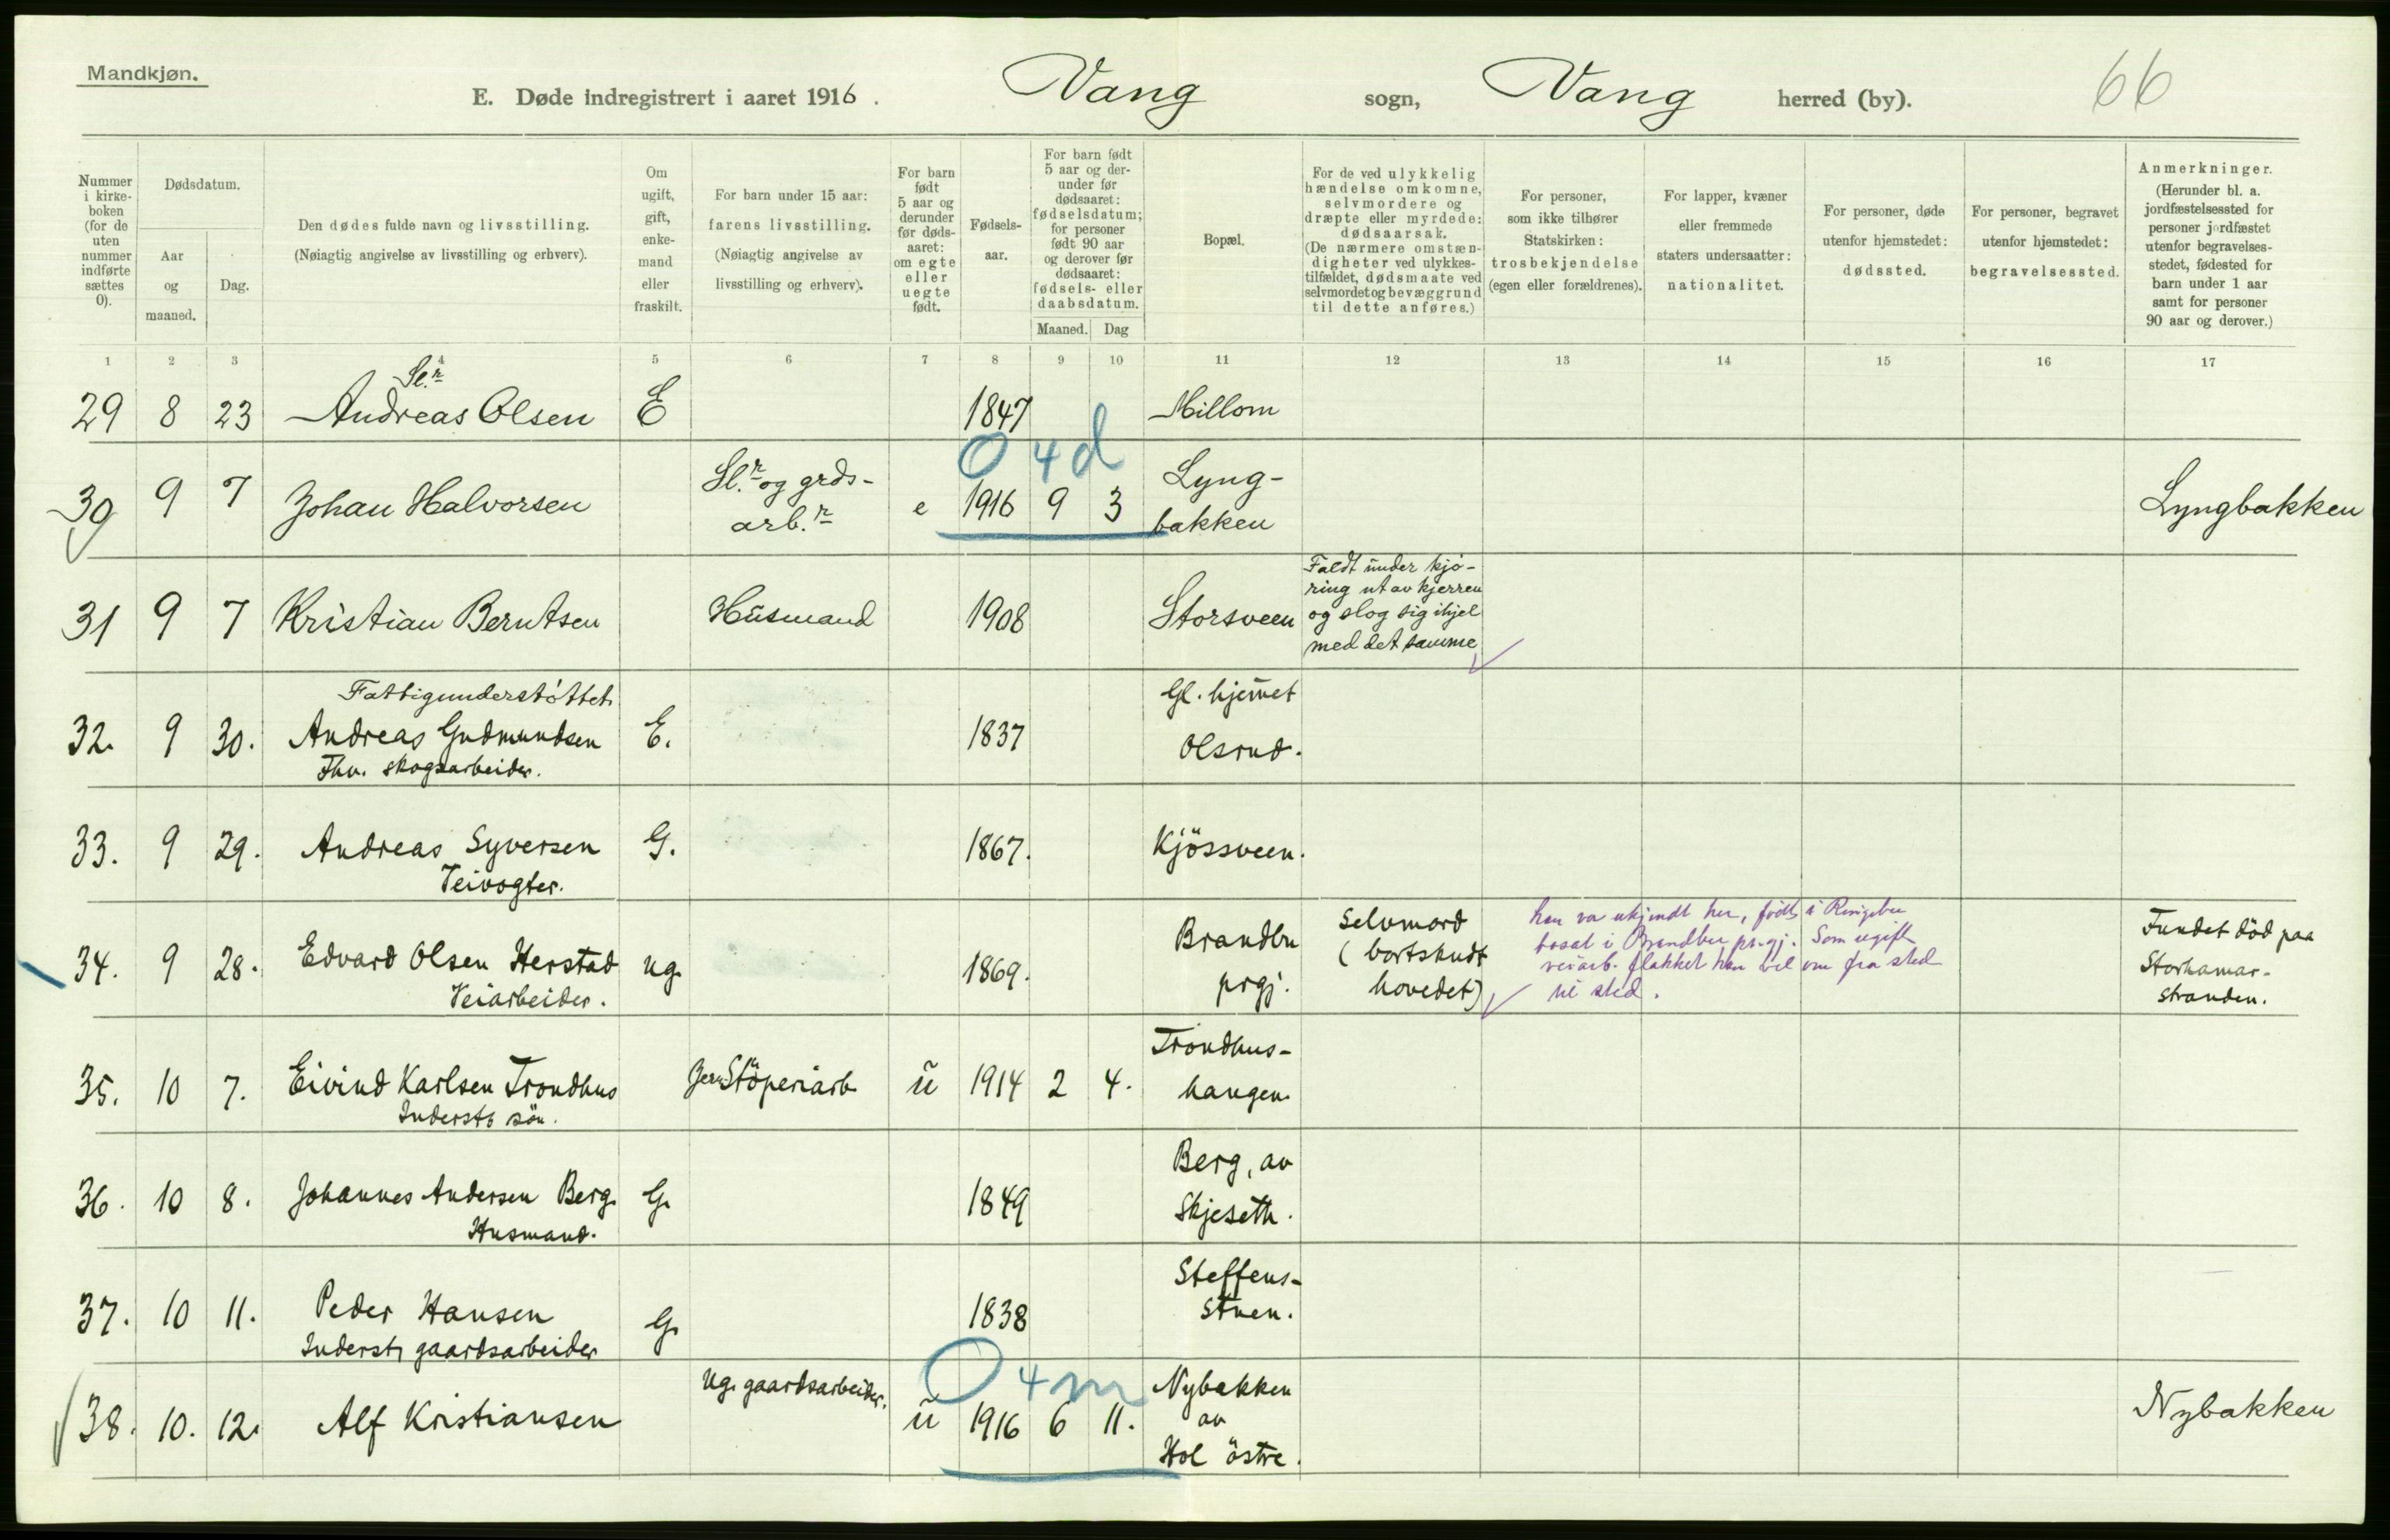 Mandkjøn.
E. Døde indregistrert i aaret 1916. Vang sogn, Vang herred (by). 66
Nummer i kirke-boken (for de uten nummer indførte sættes 0).
Dødsdatum.
Aar og maaned.
Dag.
Den dødes fulde navn og livsstilling.
(Nøiagtig angivelse av livsstilling og erhverv).
Om ugift, gift, enke-mand eller fraskilt.
For barn under 15 aar:
farens livsstilling.
(Nøiagtig angivelse av livsstilling og erhverv).
For barn født 5 aar og derunder før døds-aaret: om egte eller uegte født.
Fødsels-aar.
For barn født 5 aar og der-under før dødsaaret: fødselsdatum; for personer født 90 aar og derover før dødsaaret: fødsels- eller daabsdatum.
Maaned. Dag
Bopæl.
For de ved ulykkelig hændelse omkomne, selvmordere og dræpte eller myrdede: dødsaarsak. (De nærmere omstæn-digheter ved ulykkes-tilfældet, dødsmaate ved selvmordet og bevæggrund til dette anføres.)
For personer, som ikke tilhører Statskirken: trosbekjendelse (egen eller forældrenes).
For lapper, kvæner eller fremmede staters undersaatter: nationalitet.
For personer, døde utenfor hjemstedet: dødssted.
For personer, begravet utenfor hjemstedet: begravelsessted.
Anmerkninger. (Herunder bl. a. jordfæstelsessted for personer jordfæstet utenfor begravelses-stedet, fødested for barn under 1 aar samt for personer 90 aar og derover.)
1 2 3 4 5 6 7 8 9 10 11 12 13 14 15 16 17
Sl.r
29 8 23 Andreas Olsen E 1847 Millom
0 4 d
30 9 7 Johan Halvorsen Sl.r og grds-arb.r e 1916 9 3 Lyng-bakken Lyngbakken
31 9 7 Kristian Berntsen Husmand 1908 Storsveen
Faldt under kjø-
ring ut av kjerren
og slog sig ihjel
med det samme
Fattigunderstøttet
32. 9 30. Andreas Gudmundsen E. 1837 Gl. hjemet Olsrud.
Fhv. skogsarbeider.
33. 9 29. Andreas Syversen G. 1867. Kjössveen.
Veivogter.
34. 9 28. Edvard Olsen Herstad ug. 1869. Brandbu prgj.
Veiarbeider.
Selvmord
(bortskudt
hovedet)
han va ukjendt her, født i Ringebu
bosat i Brandbu pr.gj. Som ugift
veiarb. flakket han vel om fra sted
til sted.
Fundet död paa
Storhamar-
stranden.
35. 10 7. Eivind Karlsen Trondhus Jern Stöperiarb u 1914 2 4. Trondhus-haugen
Inderst sön.
36. 10 8. Johannes Andersen Berg. G. 1849 Berg, av Skjeseth.
Husmand.
37. 10 11. Peder Hansen G. 1838 Steffens-stuen.
Inderst, gaardsarbeider
0 4 m
38. 10. 12. Alf Kristiansen Ug. gaardsarbeider. u 1916 6 11. Nybakken av Hol östre. Nybakken